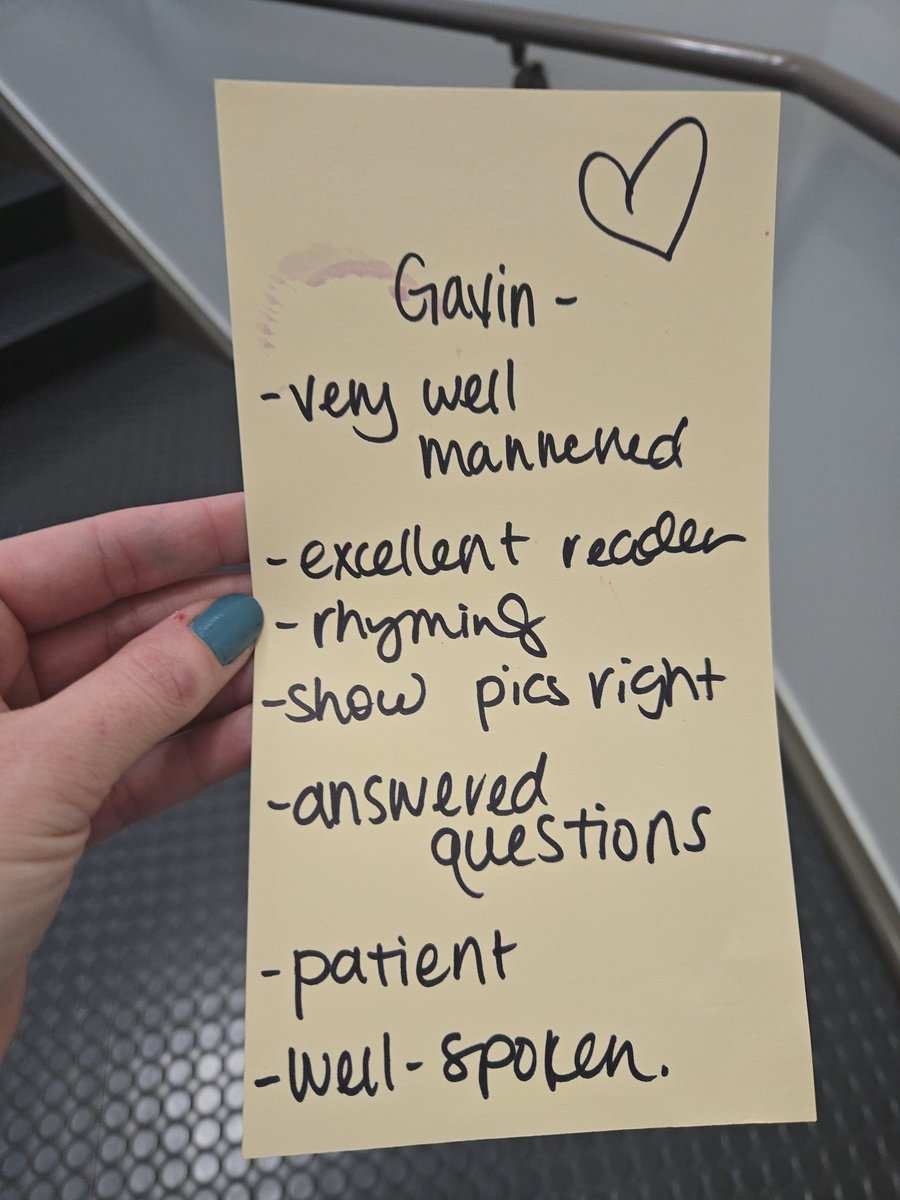 Gavin -
- very well
mannered
- excellent reader
- rhyming
- show pics right
- answered
questions
- patient
- well-spoken.